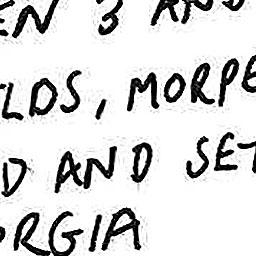 EN 3 AND
LDS, MORPE
D AND SET
ORGIA